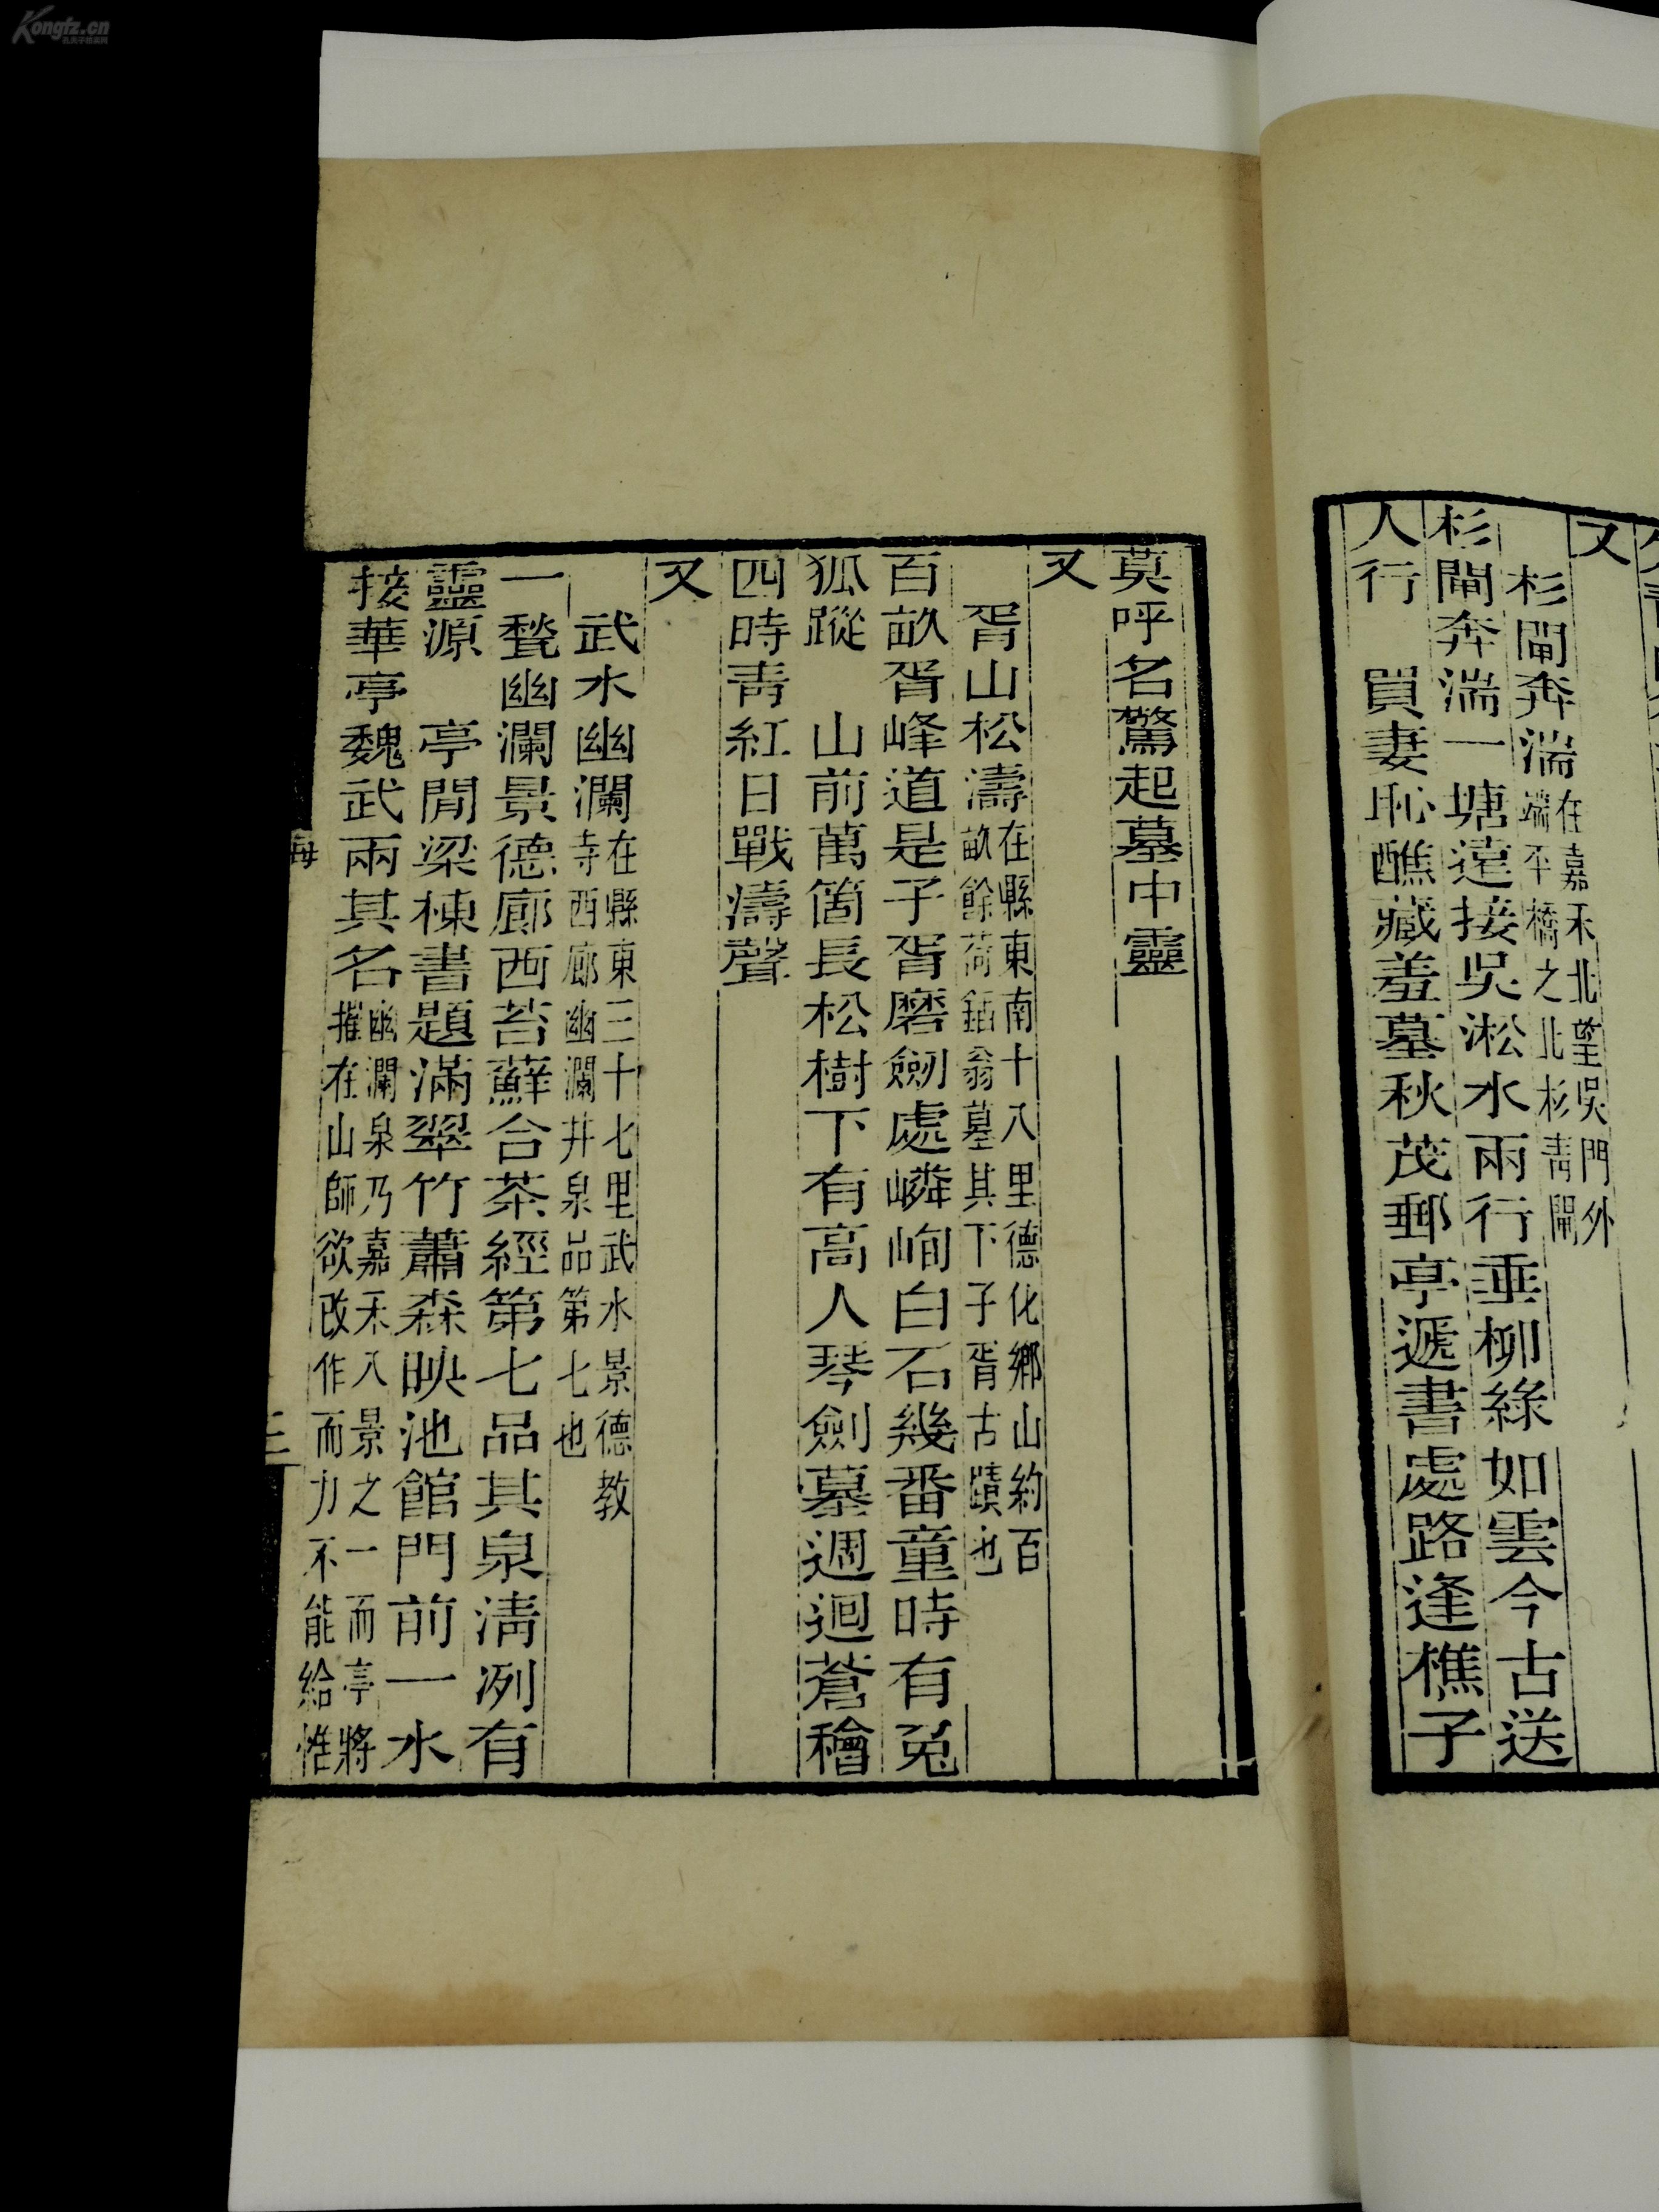 又
杉閘奔湍在嘉禾北望吳門外
端平橋之北杉青閘
杉閘奔湍一塘遠接吳淞水兩行垂柳綠如雲今古送
人行　買妻恥醮藏羞墓秋茂郵亭遞書處路逢樵子
莫呼名驚起墓中靈
又
胥山松濤在縣東南十八里德化鄉山約百
畝餘荷鍤翁墓其下子胥古蹟也
百畝胥峰道是子胥磨劍處嶙峋白石幾番童時有兎
狐蹤　山前萬箇長松樹下有高人琴劍墓週迴蒼檜
四時青紅日戰濤聲
又
武水幽瀾在縣東三十七里武水景德教
寺西廊幽瀾井泉品第七也
一甃幽瀾景德廊西苔蘚合茶經第七品其泉清冽有
靈源　亭閒梁棟書題滿翠竹蕭森映池館門前一水
接華亭魏武兩其名幽瀾泉乃嘉禾八景之一而亭將
摧在山師欲改作而力不能給惟
三
Kongfz.cn
孔夫子旧书网